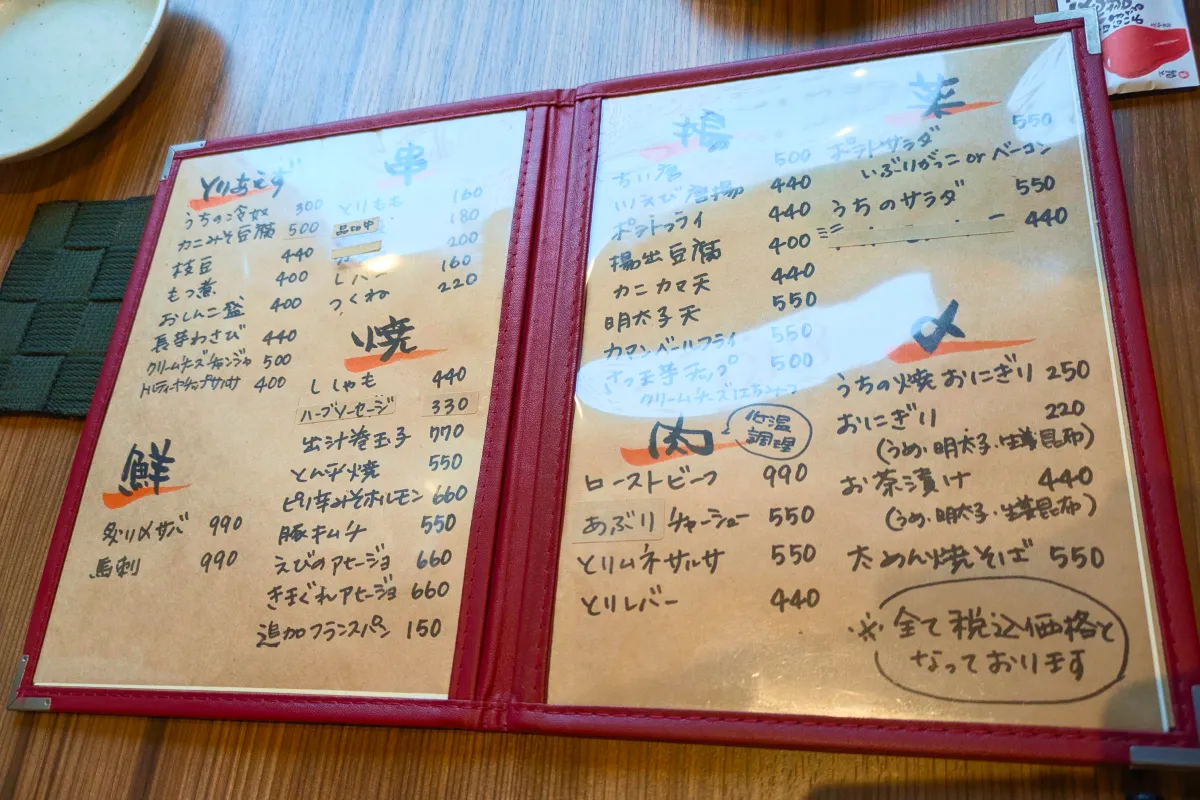 とりあえず
うちの冷奴 300
カニみそ豆腐 500
枝豆 440
もつ煮 400
おしんこ盛 400
長芋わさび 440
クリームチーズチャンジャ 500
トルティーヤチップサルサ 400
鮮
炙り〆サバ 990
馬刺 990
串
とりもも 160
品切中 180
200
レバー 160
つくね 220
焼
ししゃも 440
ハーブソーセージ 330
出汁巻玉子 770
とん平焼 550
ピリ辛みそホルモン 660
豚キムチ 550
えびのアヒージョ 660
きまぐれアヒージョ 660
追加フランスパン 150
揚
ちい唐 500
川えび唐揚 440
ポテトフライ 440
揚出豆腐 400
カニカマ天 440
明太子天 550
カマンベールフライ 550
さつま芋チップ 500
クリームチーズはちみつ
肉
低温
調理
ローストビーフ 990
あぶりチャーシュー 550
とりムネサルサ 550
とりレバー 440
菜
ポテトサラダ 550
いぶりがっこ or ベーコン
うちのサラダ 550
440
〆
うちの焼おにぎり 250
おにぎり 220
(うめ・明太子・生姜昆布)
お茶漬け 440
(うめ・明太子・生姜昆布)
太めん焼そば 550
※全て税込価格と
なっております